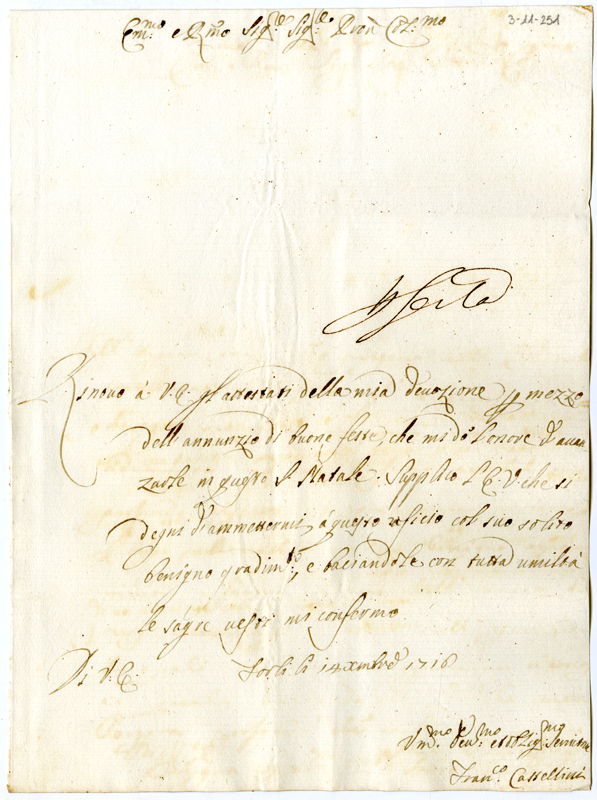 3-11-251
Em:mo e R:mo Sig:re Sig:re Pron Col:mo
Rinovo à V. E. gl'attestati della mia deuozione p mezzo
dell'annunzio di buone feste, che mi dò l'onore d'auan
zarle in questo S. Natale. Supplico l'E. V. che si
degni d'ammettermi à questo uficio col suo solito
benigno gradim:to, e baciandole con tutta umiltà
le sagre uesti mi confermo
Di V. E.
Forlì li 14 Xmbre 1716
Vm:mo Deu:mo et Oblig:mo Seruitore
Fran:co Castellini